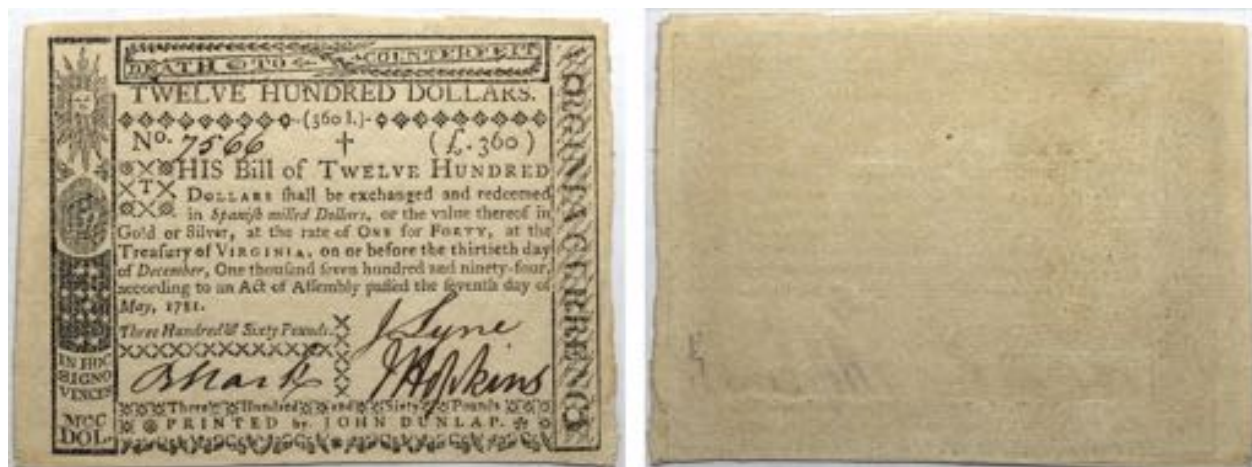 DEATH TO COUNTERFEIT
TWELVE HUNDRED DOLLARS.
(360 l.)
No. 7566 (£. 360)
THIS Bill of TWELVE HUNDRED
DOLLARS ſhall be exchanged and redeemed
in Spaniſh milled Dollars, or the value thereof in
Gold or Silver, at the rate of ONE for FORTY, at the
Treaſury of VIRGINIA, on or before the thirtieth day
of December, One thouſand ſeven hundred and ninety-four,
according to an Act of Aſſembly paſſed the ſeventh day of
May, 1781.
Three Hundred & Sixty Pounds.
J Lyne
J Hopkins
Three Hundred and Sixty Pounds
PRINTED by JOHN DUNLAP.
IN HOC
SIGNO
VINCES
MCC
DOL.
VIRGINIA CURRENCY